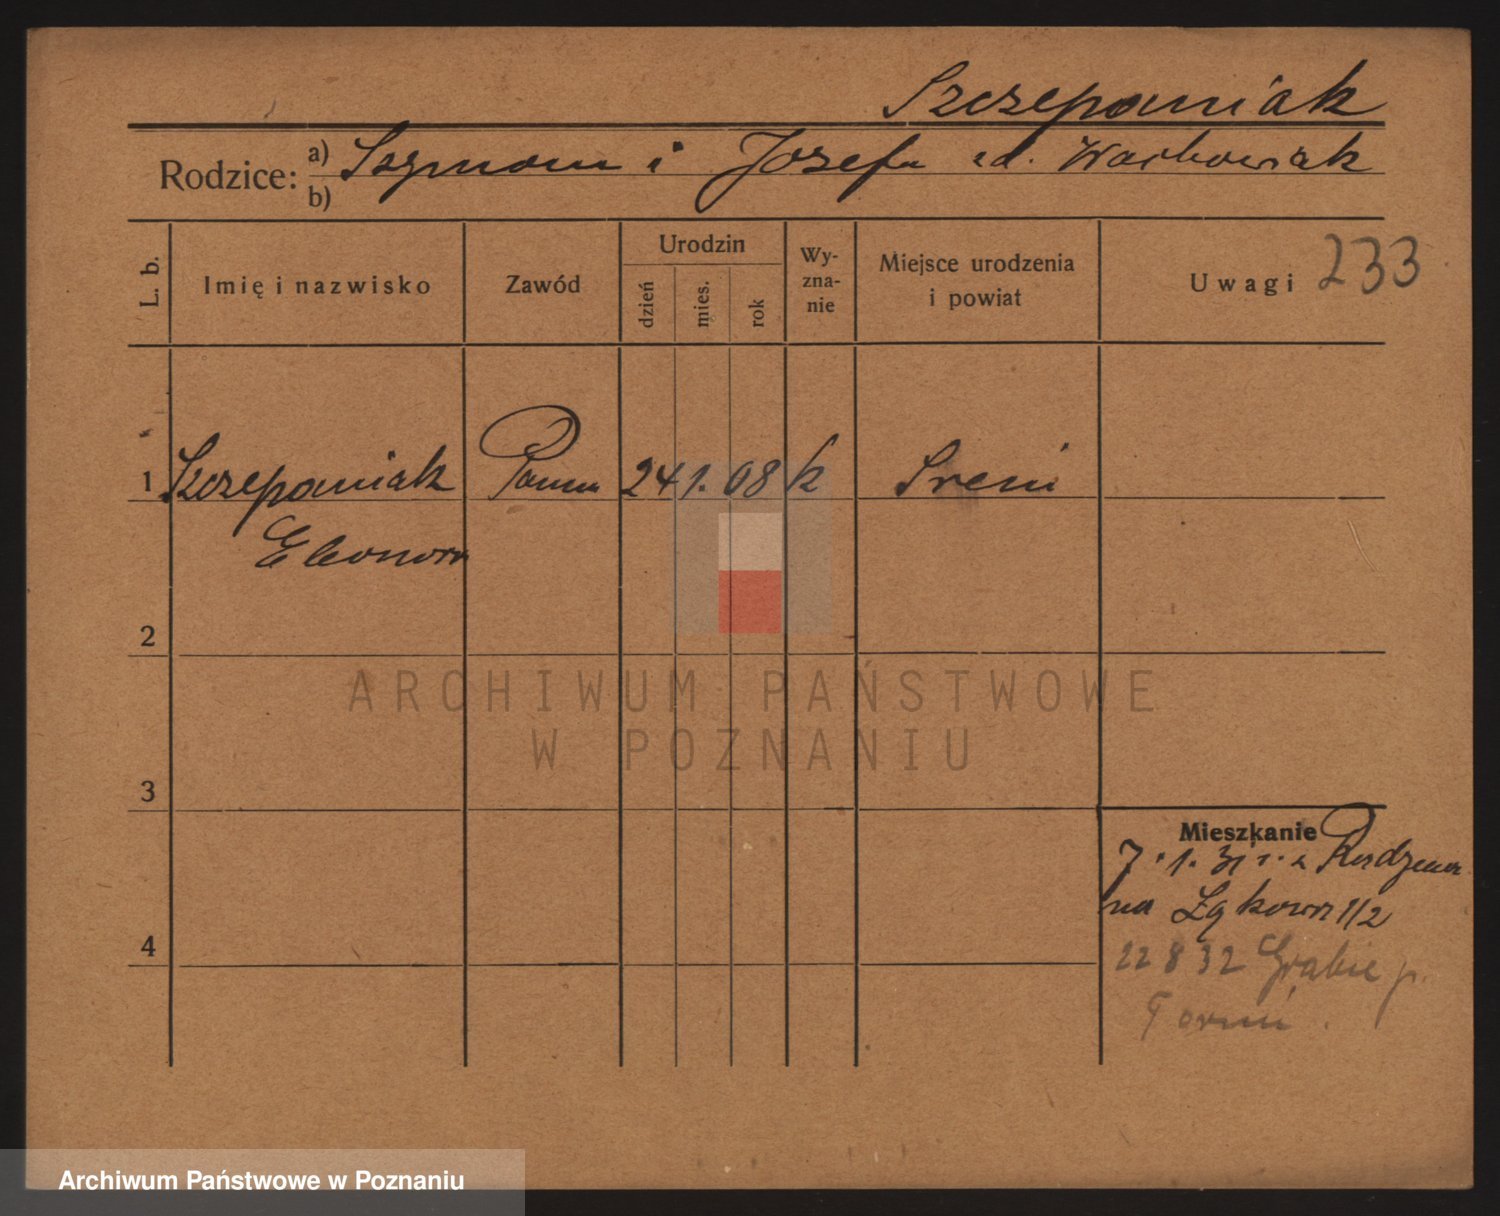 Szczepaniak
Rodzice: a) Szymon i Józefa zd. Wachowiak
b)
L. b. Imię i nazwisko Zawód Urodzin dzień mies. rok Wy-zna-nie Miejsce urodzenia i powiat Uwagi 233
1 Szczepaniak Panna 24 1. 08 k Śrem
Eleonora
2
ARCHIWUM PAŃSTWOWE
W POZNANIU
3
Mieszkanie
7.1.31 r. z
na Łąkowa 1/2
4
22 8 32 Grabie p.
Toruń.
Archiwum Państwowe w Poznaniu